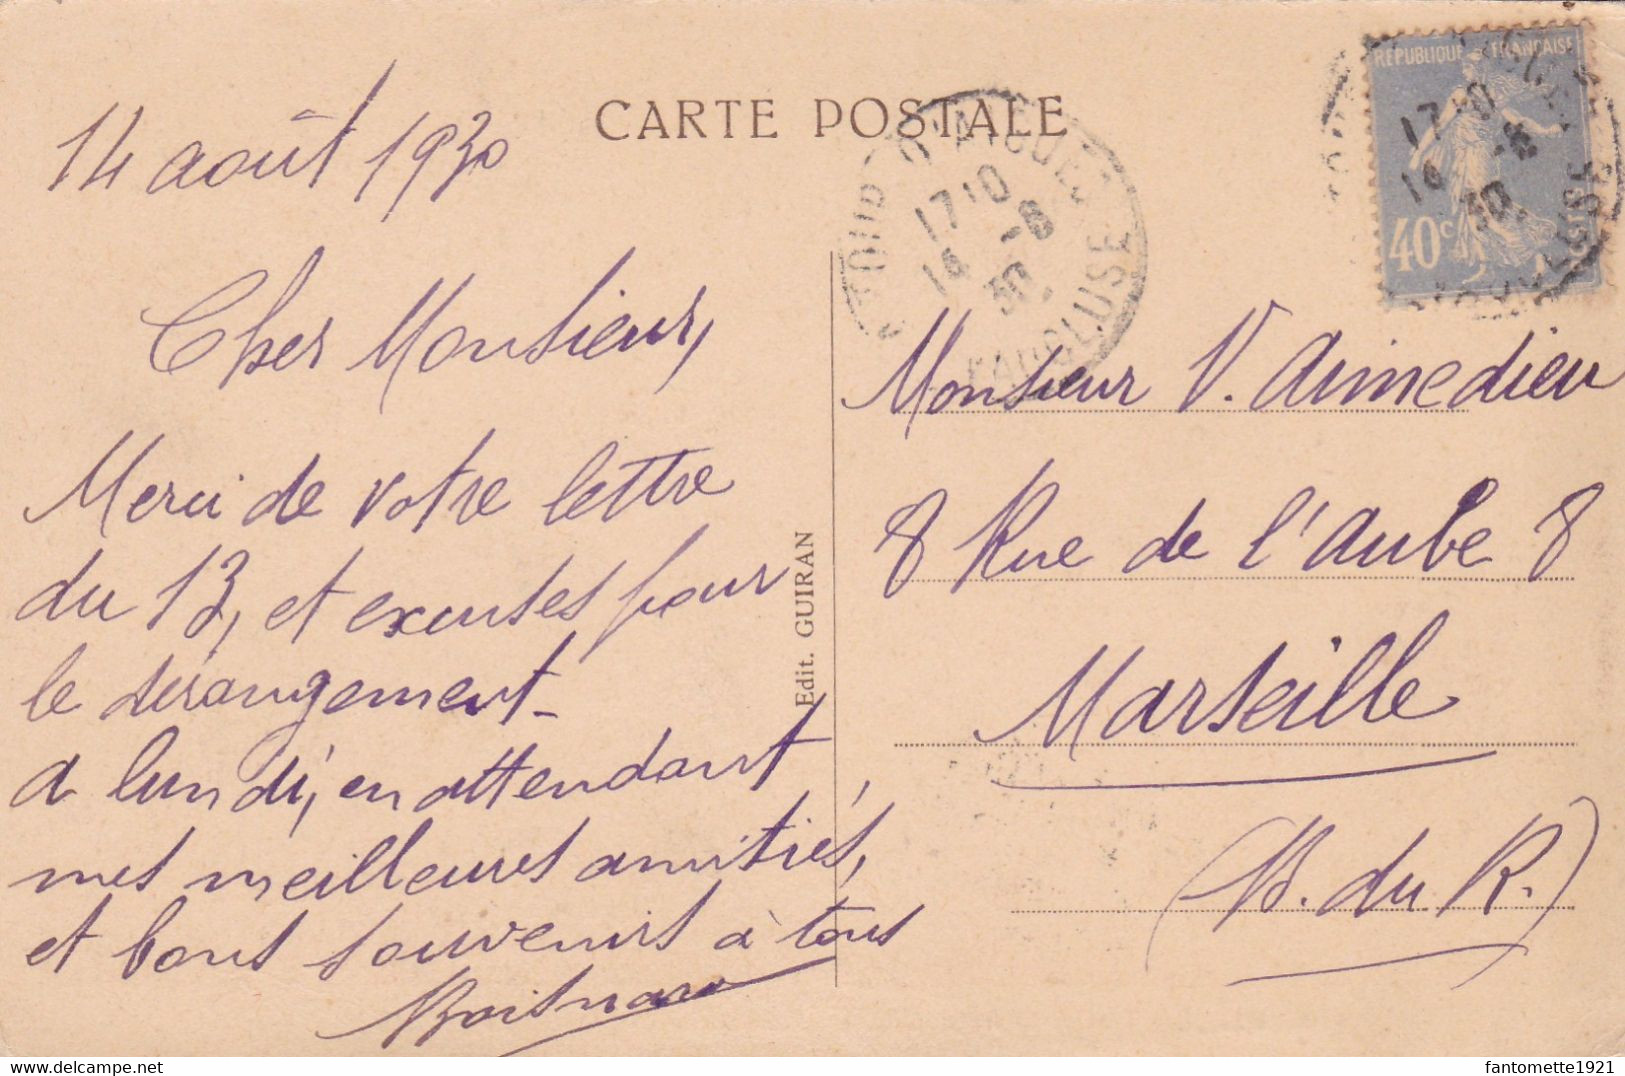 CARTE POSTALE
14 août 1930
Cher Monsieur,
Merci de votre lettre
du 13, et excuses pour
le dérangement -
a lundi, en attendant
mes meilleures amitiés,
et bons souvenirs à tous
Edit. GUIRAN
LA TOUR D'AIGUES
17 10
14 -8
30.
VAUCLUSE
REPUBLIQUE FRANÇAISE
17 10
14 -8
30.
VAUCLUSE
40c
Monsieur V. Aimedieu
8 Rue de l'Aube 8
Marseille
(B. du R.)
fantomette1921
delcampe.net